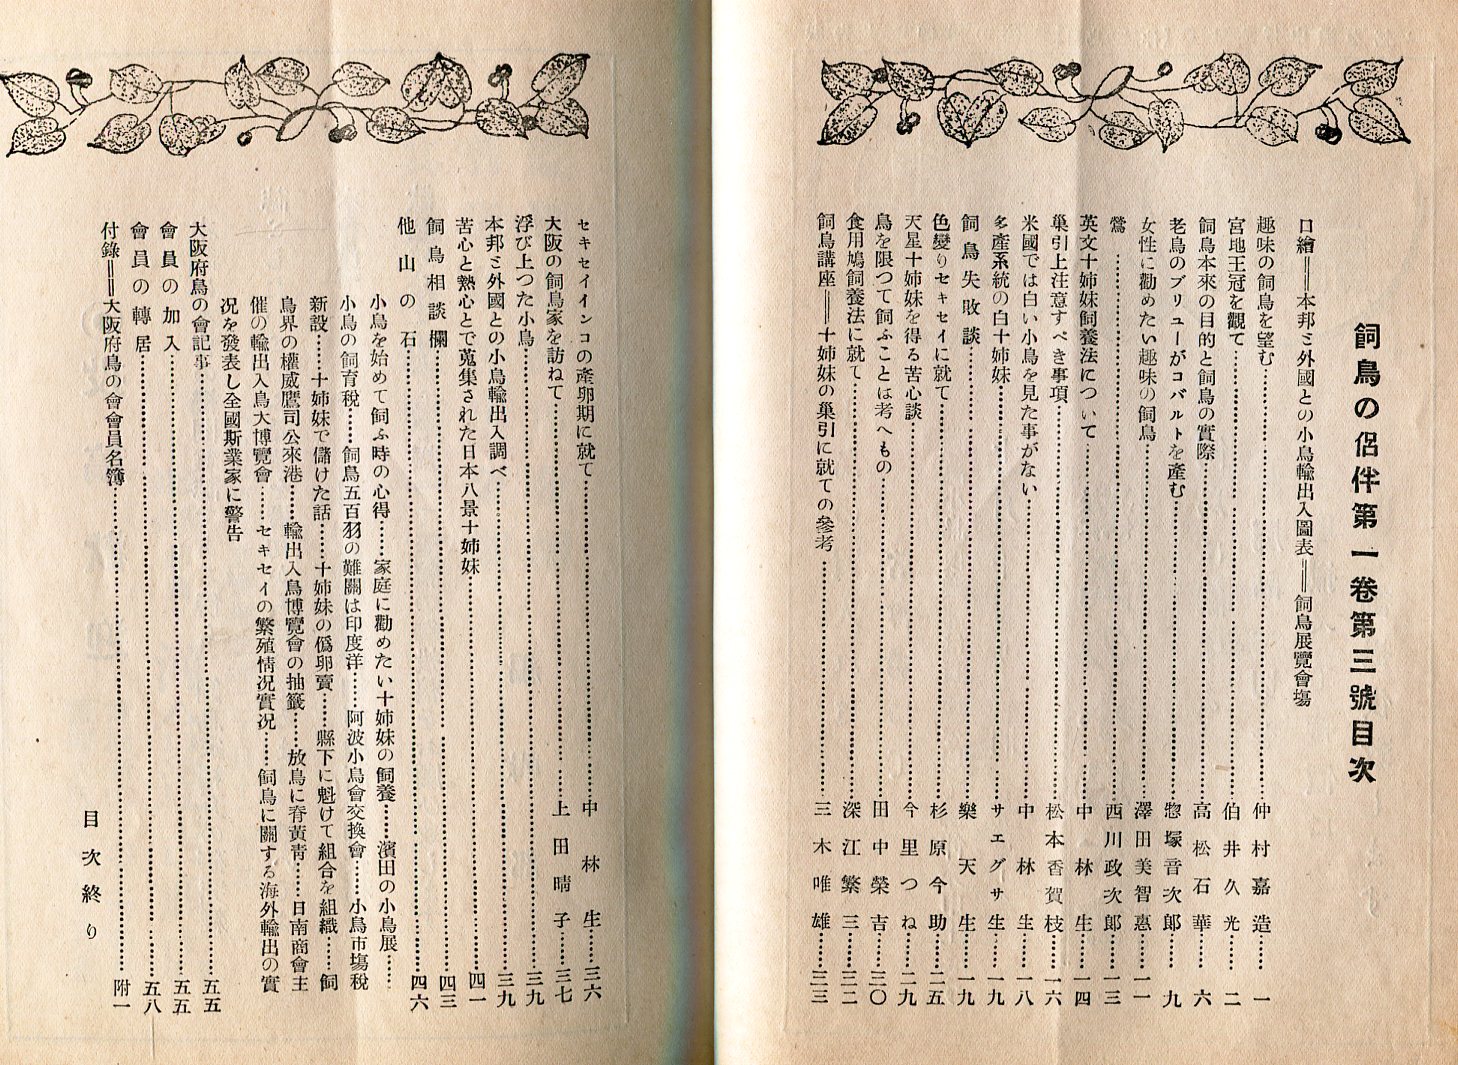 飼鳥の侶伴第一卷第三號目次
口繪＝本邦ミ外國との小鳥輸出入圖表＝飼鳥展覽會塲
趣味の飼鳥を望む……仲村嘉造……一
宮地王冠を觀て……伯井久光……二
飼鳥本來の目的と飼鳥の實際……高松石華……六
老鳥のブリユーがコバルトを產む……惣塚音次郎……九
女性に勸めたい趣味の飼鳥……澤田美智惠……一一
鶯……西川政次郎……一三
英文十姉妹飼養法について……中林生……一四
巢引上注意すべき事項……松本香賀枝……一六
米國では白い小鳥を見た事がない……中林生……一八
多產系統の白十姉妹……サエグサ生……一九
飼鳥失敗談……樂天生……一九
色變りセキセイに就て……杉原今助……二五
天星十姉妹を得る苦心談……今里つね……二九
鳥を限つて飼ふことは考へもの……田中榮吉……三〇
食用鳩飼養法に就て……深江繁三……三二
飼鳥講座＝十姉妹の巢引に就ての參考……三木唯雄……三三
セキセイインコの產卵期に就て……中林生……三六
大阪の飼鳥家を訪ねて……上田晴子……三七
浮び上つた小鳥……三九
本邦ミ外國との小鳥輸出入調べ……三九
苦心と熱心とで蒐集された日本八景十姉妹……四一
飼鳥相談欄……四三
他山の石……四六
小鳥を始めて飼ふ時の心得……家庭に勸めたい十姉妹の飼養……濱田の小鳥展……
小鳥の飼育稅……飼鳥五百羽の難關は印度洋……阿波小鳥會交換會……小鳥市塲稅
新設……十姉妹で儲けた話……十姉妹の僞卵賣……縣下に魁けて組合を組織……飼
鳥界の權威鷹司公來港……輸出入鳥博覽會の抽籤……放鳥に脊黃靑……日南商會主
催の輸出入鳥大博覽會……セキセイの繁殖情况實况……飼鳥に關する海外輸出の實
况を發表し全國斯業家に警告
大阪府鳥の會記事……五五
會員の加入……五五
會員の轉居……五八
付錄＝大阪府鳥の會會員名簿……附一
目次終り